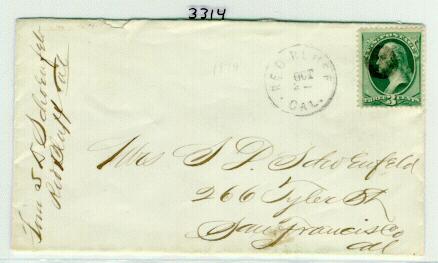 3314
From S D Schoenfeld
Red Bluff Cal
1879
RED BLUFF
OCT
CAL.
U.S. POSTAGE
THREE 3 CENTS
Mrs S D Schoenfeld
266 Tyler St
San Francisco
Cal